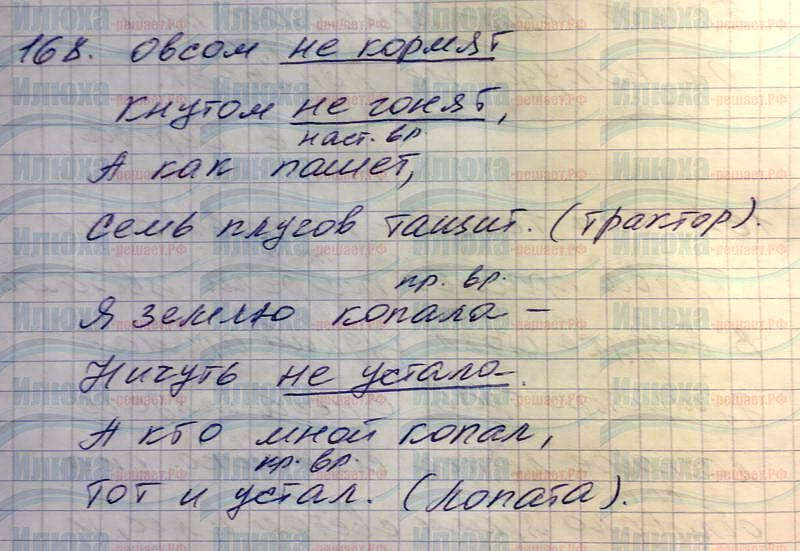 168. Овсом не кормят
Кнутом не гонят,
наст. вр
А как пашет,
Семь плугов тащит. (трактор).
пр. вр.
Я землю копала –
Ничуть не устала.
А кто мной копал,
пр. вр.
тот и устал. (лопата).